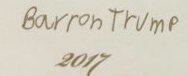 Barron Trump
2017